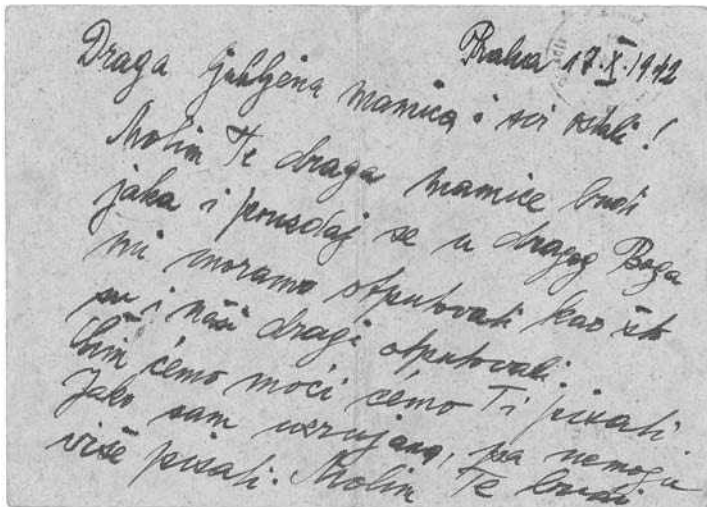 Praha 17.X.1942
Draga ljubljena mamica i svi ostali!
Molim Te draga mamice budi
jaka i pouzdaj se u dragog Boga
mi moramo otputovati kao što
su i naši dragi otputovali.
Čim ćemo moći ćemo Ti pisati.
Jako sam uzrujana, pa nemogu
više pisati. Molim Te budi